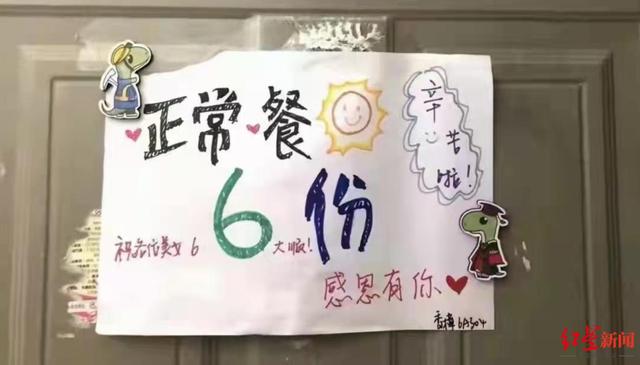 正常餐
辛苦啦!
6份
祝各位美女6大顺!
感恩有你
香樟6A304
红星新闻